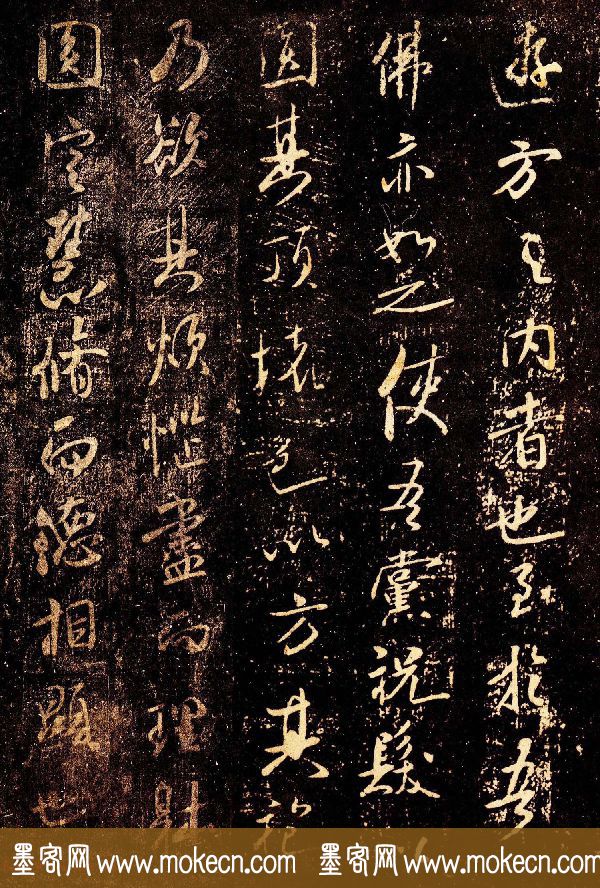 遊方之内者也至於吾
佛亦如之使吾黨祝髮以
圓其頂壞色以方其袍
乃欲其煩惱盡而理體
圓定慧脩而德相顯也
墨客网 www.mokecn.com 墨客网 www.mokecn.com